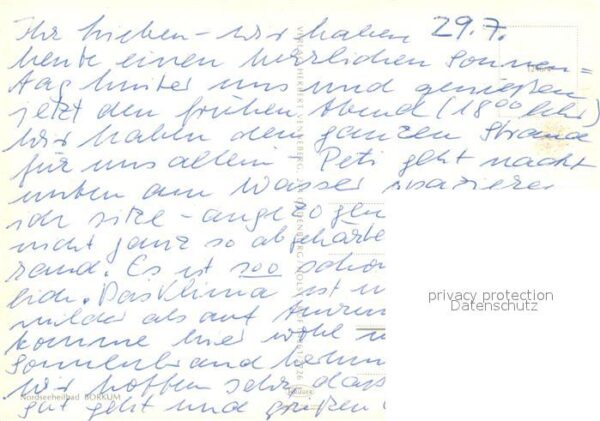 29.7.
Ihr Lieben – wir haben
heute einen herrlichen Sonnen=
tag hinter uns und genießen
jetzt den frühen Abend (18 00 Uhr)
Wir haben den ganzen Strand
für uns allein – Peti geht nackt
unten am Wasser spazieren
ich sitze – angezogen
nicht ganz so abgehärte
rand. Es ist soo schön
lich. Das Klima ist
milder als auf
komme hier wohl
Sonnenbrand
Wir hoffen sehr, daß
gut geht und grüßen
Nordseeheilbad BORKUM
privacy protection
Datenschutz